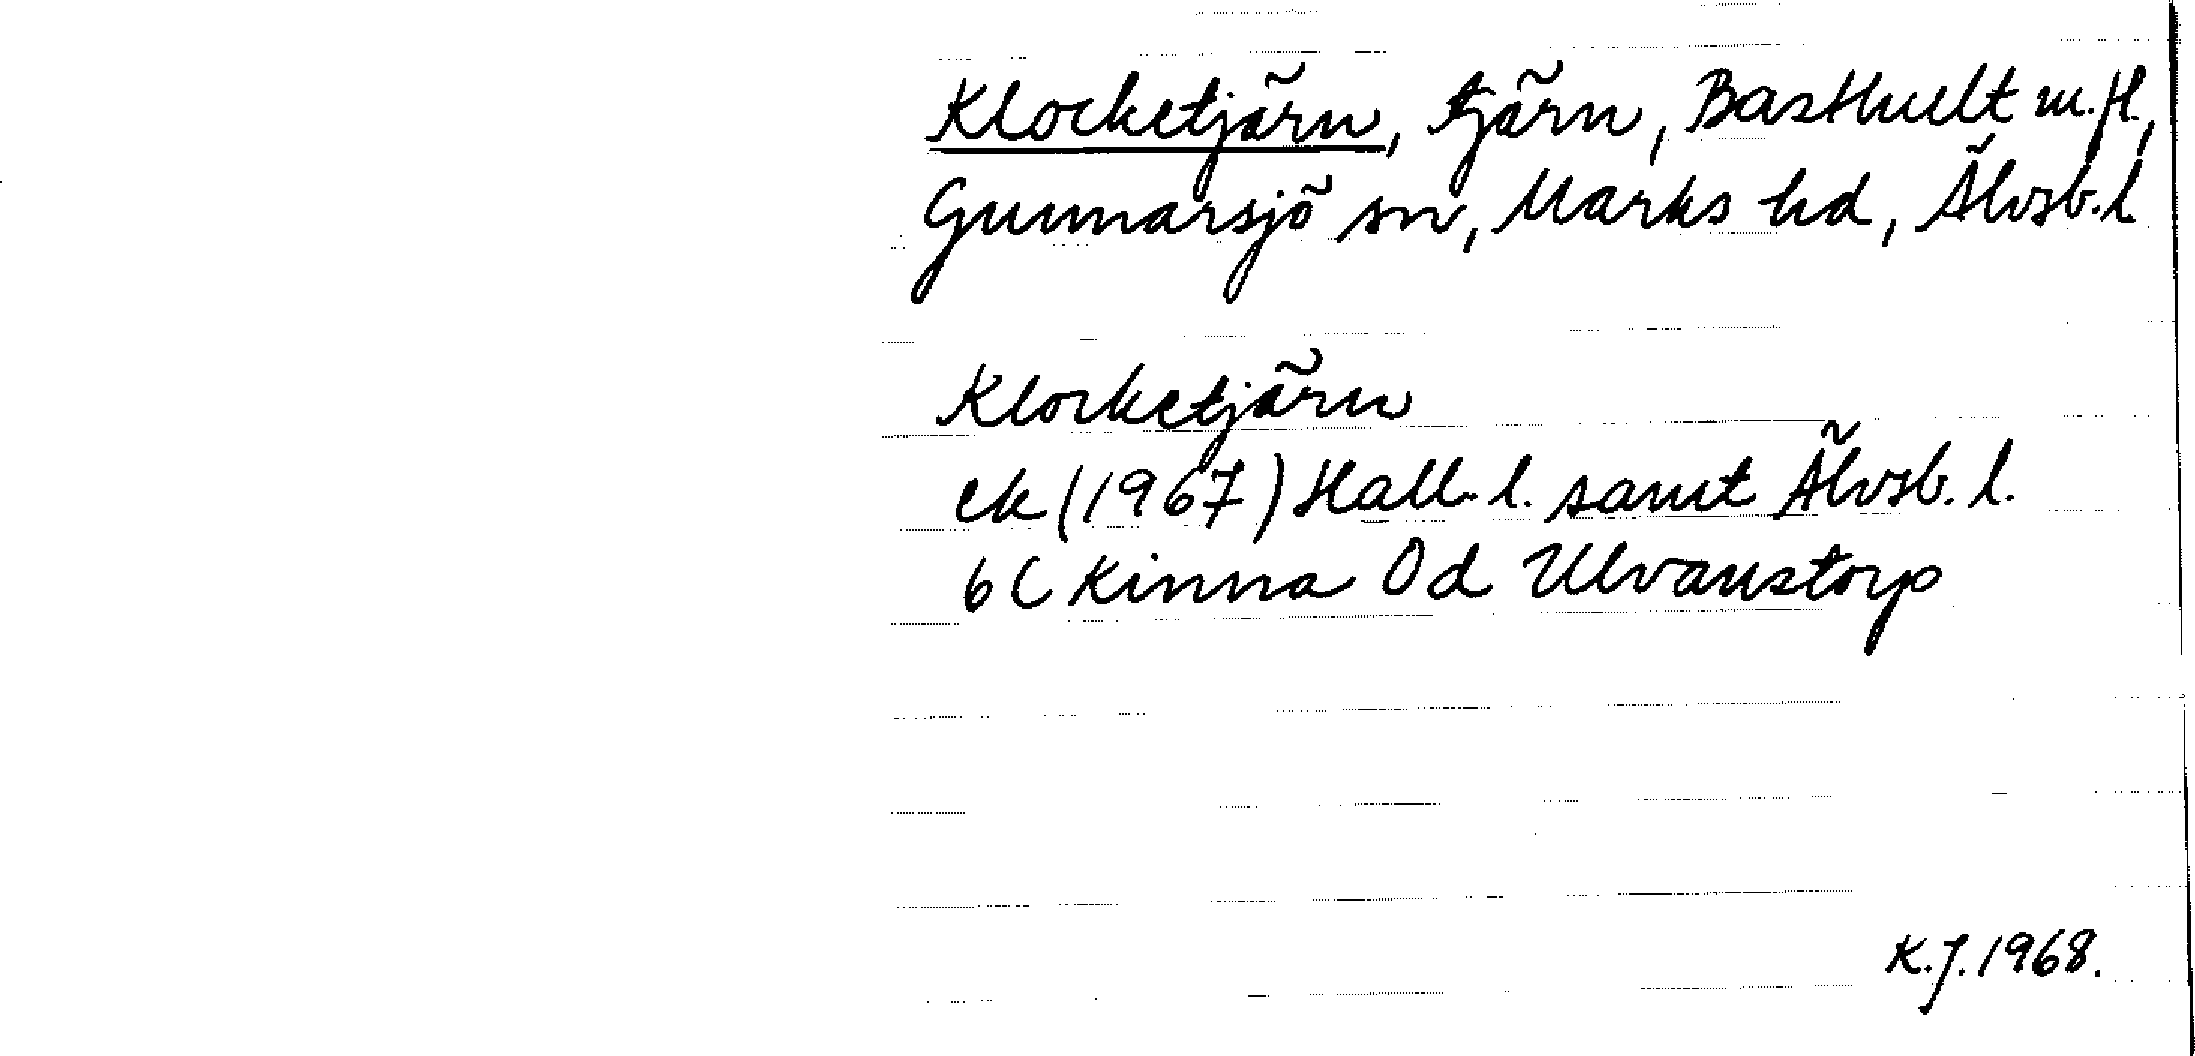 Klocketjärn, tjärn, Basthult m.fl.,
Gunnarsjö sn, Marks hd, Älvsb.l
Klocketjärn
ek (1967) Hall. l. samt Älvsb. l.
6C Kinna 0d Ulvanstorp
K.J. 1968.